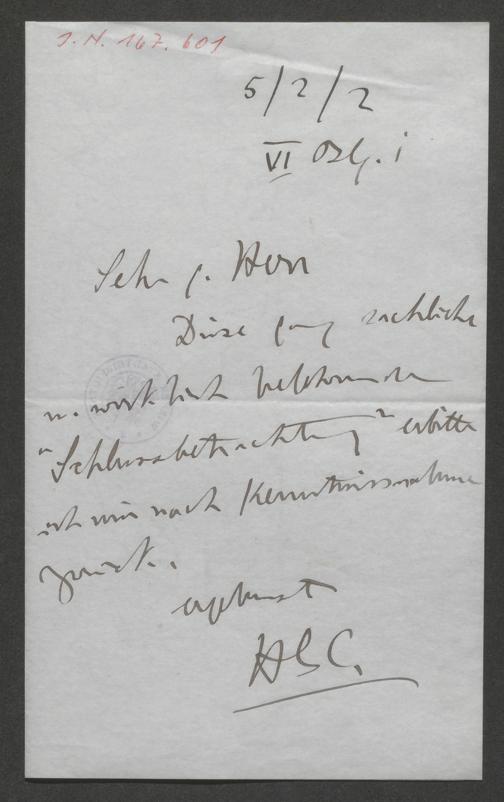 J. N. 167.601
5/2/2
VI
Sehr g. Herr
Diese ganz sachliche
u. wirklich belehrende
"Schlussbetrachtung" erbitte
ich mir nach Kenntnissnahme
zurück.
ergebenst